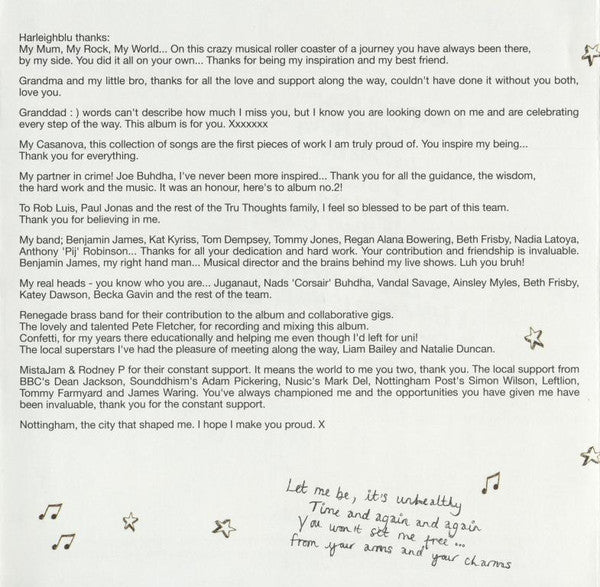 Harleighblu thanks:
My Mum, My Rock, My World... On this crazy musical roller coaster of a journey you have always been there,
by my side. You did it all on your own... Thanks for being my inspiration and my best friend.
Grandma and my little bro, thanks for all the love and support along the way, couldn't have done it without you both,
love you.
Granddad : ) words can't describe how much I miss you, but I know you are looking down on me and are celebrating
every step of the way. This album is for you. Xxxxxxx
My Casanova, this collection of songs are the first pieces of work I am truly proud of. You inspire my being...
Thank you for everything.
My partner in crime! Joe Buhdha, I've never been more inspired... Thank you for all the guidance, the wisdom,
the hard work and the music. It was an honour, here's to album no.2!
To Rob Luis, Paul Jonas and the rest of the Tru Thoughts family, I feel so blessed to be part of this team.
Thank you for believing in me.
My band; Benjamin James, Kat Kyriss, Tom Dempsey, Tommy Jones, Regan Alana Bowering, Beth Frisby, Nadia Latoya,
Anthony 'Pij' Robinson... Thanks for all your dedication and hard work. Your contribution and friendship is invaluable.
Benjamin James, my right hand man... Musical director and the brains behind my live shows. Luh you bruh!
My real heads - you know who you are... Juganaut, Nads 'Corsair' Buhdha, Vandal Savage, Ainsley Myles, Beth Frisby,
Katey Dawson, Becka Gavin and the rest of the team.
Renegade brass band for their contribution to the album and collaborative gigs.
The lovely and talented Pete Fletcher, for recording and mixing this album.
Confetti, for my years there educationally and helping me even though I'd left for uni!
The local superstars I've had the pleasure of meeting along the way, Liam Bailey and Natalie Duncan.
MistaJam & Rodney P for their constant support. It means the world to me you two, thank you. The local support from
BBC's Dean Jackson, Sounddhism's Adam Pickering, Nusic's Mark Del, Nottingham Post's Simon Wilson, Leftlion,
Tommy Farmyard and James Waring. You've always championed me and the opportunities you have given me have
been invaluable, thank you for the constant support.
Nottingham, the city that shaped me. I hope I make you proud. X
Let me be, it's unhealthy
Time and again and again
You won't set me free...
from your arms and your charms